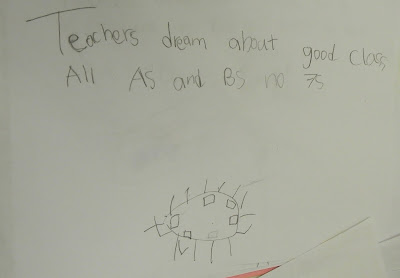 Teachers dream about good class
All As and Bs no Fs